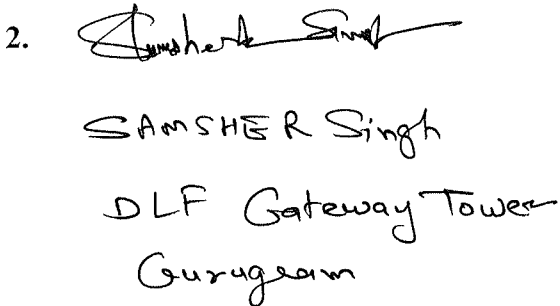 2. Shamsher Singh
SAMSHER Singh
DLF Gateway Tower
Gurugram